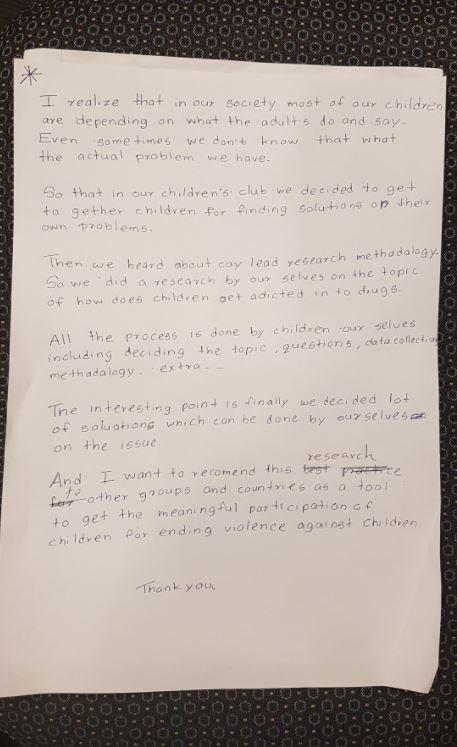 I realize that in our society most of our children
are depending on what the adults do and say.
Even sometimes we don't know that what
the actual problem we have.
So that in our children's club we decided to get
to gether children for finding solutions on their
own problems.
Then we heard about cay lead research methadalogy.
So we did a research by our selves on the topic
of how does children get adicted in to drugs.
All the process is done by children our selves
including deciding the topic, questions, data collection
methadalogy. extra...
The interesting point is finally we decided lot
of soluations which can be done by ourselves
on the issue
research
And I want to recomend this best practice
for to other groups and countries as a tool
to get the meaningful participation of
children for ending violence against children
Thank you,